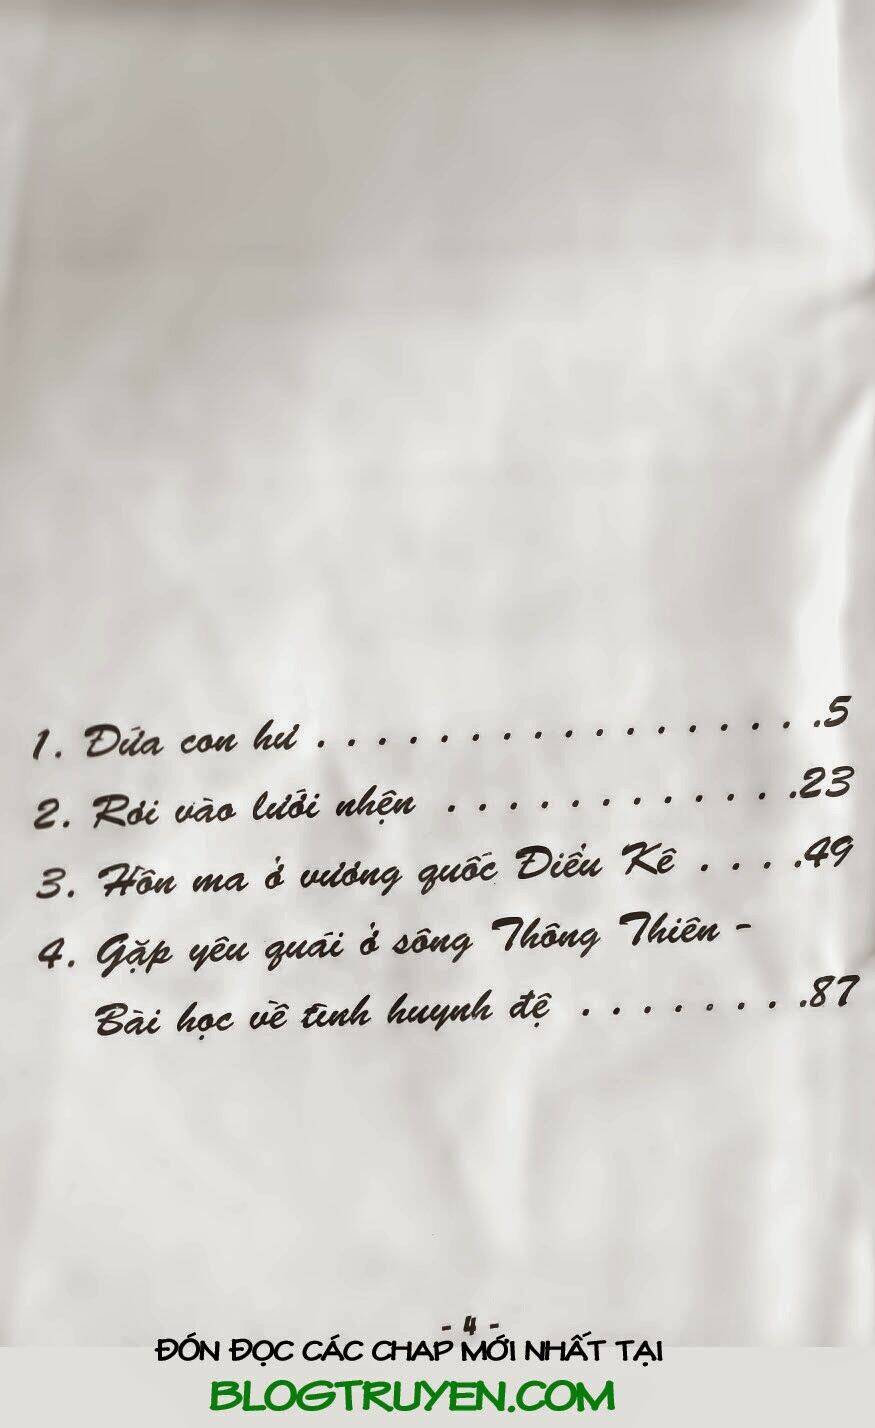 1. Đứa con hư . . . . . . . . . . . . . . . . .5
2. Rơi vào lưới nhện . . . . . . . . . . . .23
3. Hồn ma ở vương quốc Điểu Kê . . . .49
4. Gặp yêu quái ở sông Thông Thiên -
Bài học về tình huynh đệ . . . . . . . .87
- 4 -
ĐÓN ĐỌC CÁC CHAP MỚI NHẤT TẠI
BLOGTRUYEN.COM